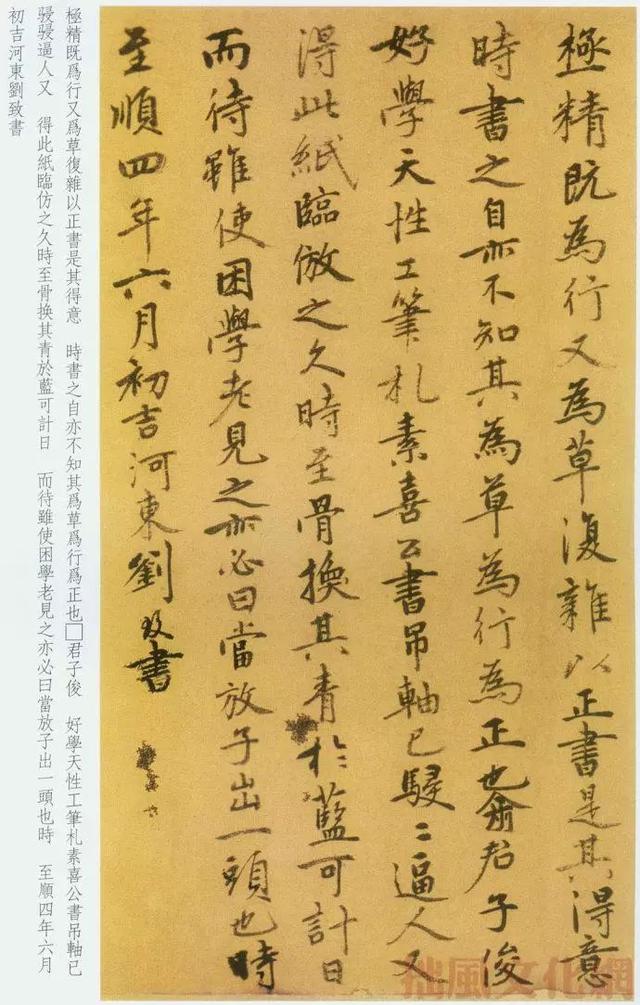 極精既為行又為草復雜以正書是其得意
時書之自亦不知其為草為行為正也俞君子俊
好學天性工筆札素喜公書吊軸已駸〻逼人又
得此紙臨倣之久時至骨換其青於藍可計日
而待雖使困學老見之亦必曰當放子出一頭也時
至順四年六月初吉河東劉致書
極精既爲行又爲草復雜以正書是其得意　時書之自亦不知其爲草爲行爲正也□君子俊　好學天性工筆札素喜公書吊軸已
駸駸逼人又　得此紙臨仿之久時至骨換其青於藍可計日　而待雖使困學老見之亦必曰當放子出一頭也時　至順四年六月
初吉河東劉致書
拙風文化網